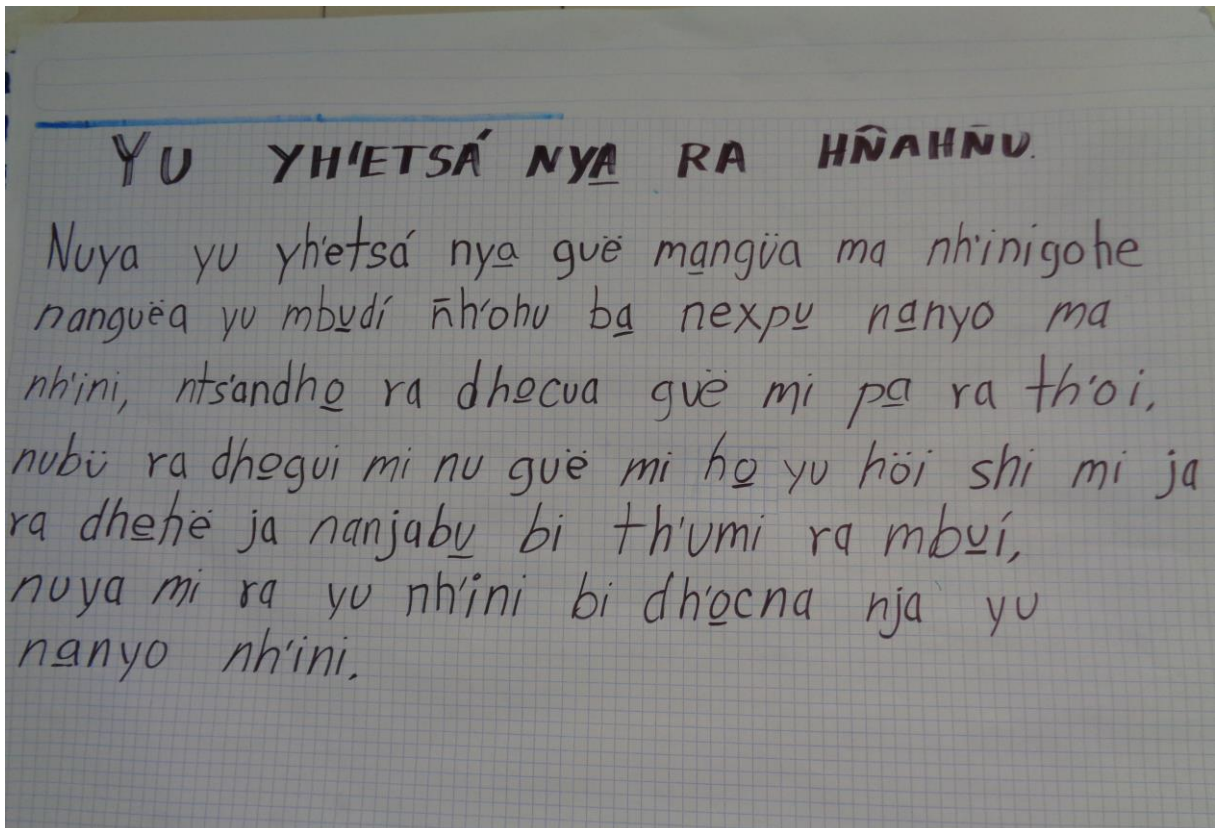 YU YH'ETSÁ NYA̲ RA HÑ̂AHÑU.
Nuya yu yh'etsá nya̲ guë ma̲ngüa ma nh'inigohe
nanguëa yu mbu̲dí ñh'ohu ba̲ nexpu̲ na̲nyo ma
nh'ini, nts'andho̲ ra dho̲cua guë mi pa̲ ra th'oi,
nubü ra dho̲gui mi nu guë mi ho̲ yu höi shi mi ja
ra dhe̲hë ja nanjabu̲ bi th'umi ra mbu̲í,
nuya mi ra yu nh'ini bi dh'o̲cna nja yu
na̲nyo nh'ini.